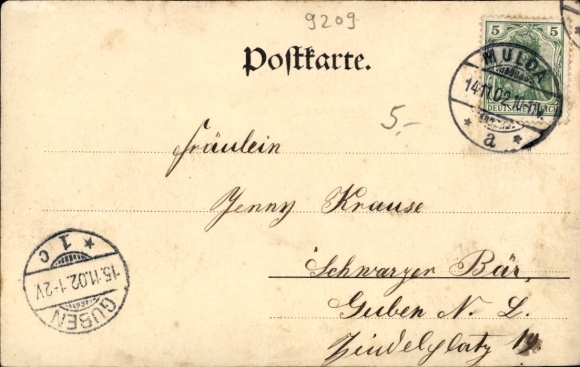 9209
Postkarte.
5 5
DEUTSCHES REICH
MULDA
14.11.02.
a
5,-
Fräulein
Jenny Krause
Schwarzer Bär,
Guben N. L.
Zindelplatz 19.
1 c
15.11.02.1-2V
GUBEN